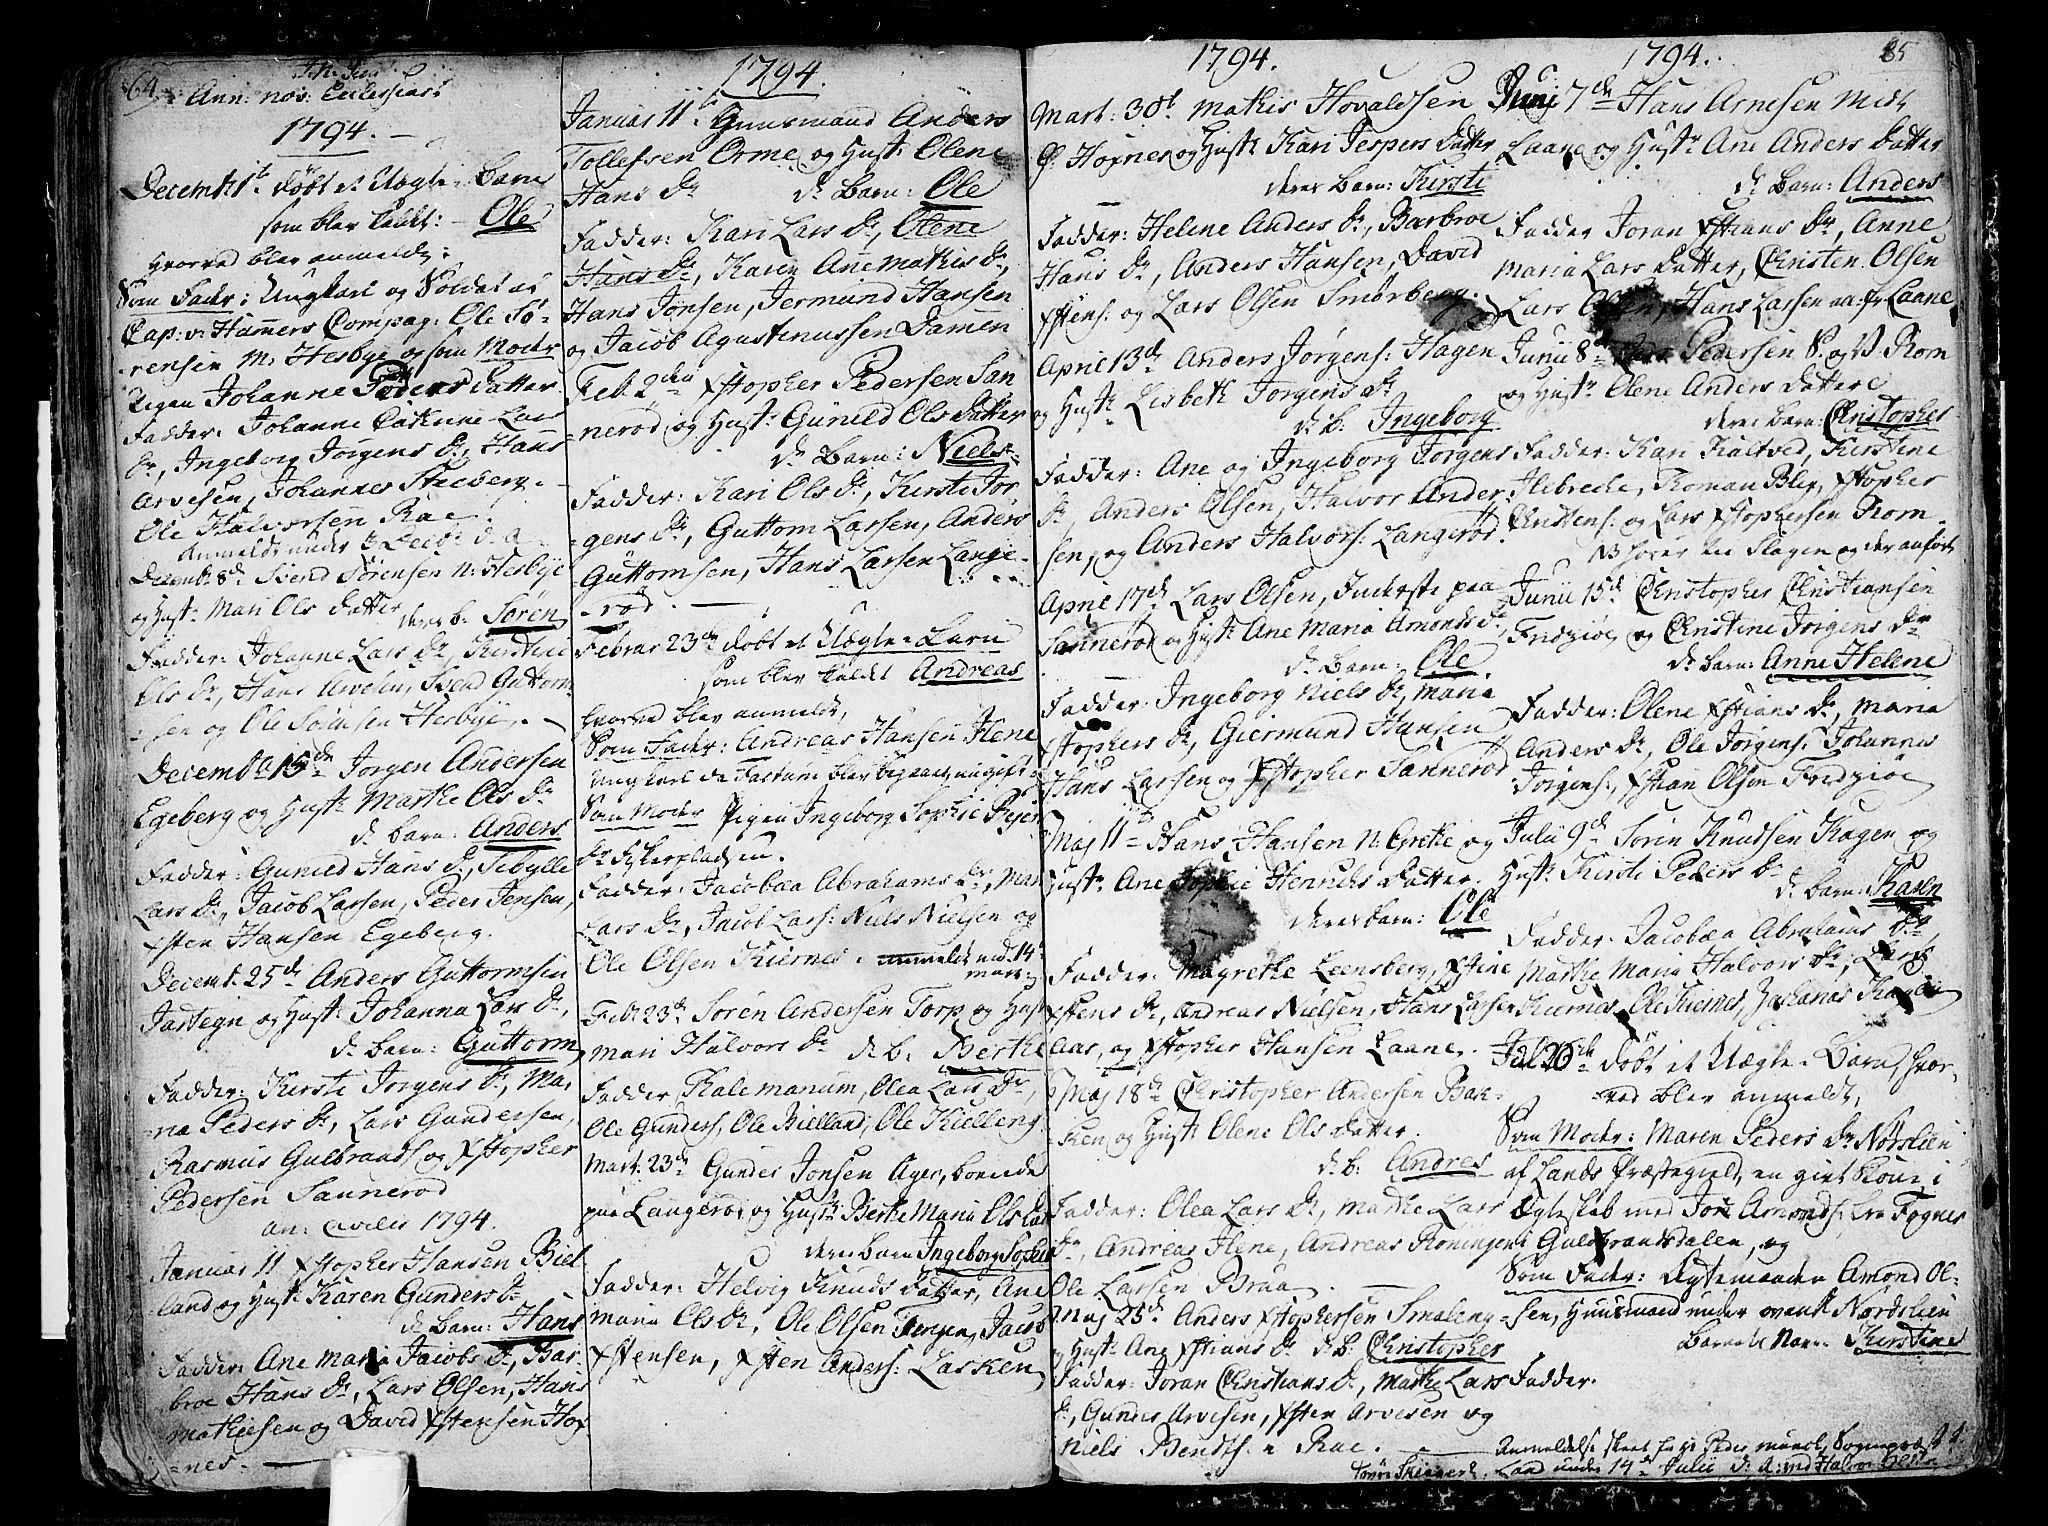 64.
Ann: nov: Ecclesiast:
1794.
Decemb: 1te døbt et Uægte Barn
som blev kaldt: Ole
hvorved blev anmeldt:
Som Fader: Ungkarl og Soldat af
Cap: v: Hammers Compag: Ole Sø-
rensen N: Hesbye og som Moder
Pigen Johanne Peders Datter
Fadder: Johanne Cathrine Lars
Dr, Ingeborg Jørgens Dr, Hans
Arvesen, Johannes
Ole Halvorsen Rae.
Anmeldt under 3 Decbr d. a.
Decemb: 8de Svend Sørensen N: Hesbye
og Hustr: Mari Ols Datter
deres b: Søren
Fadder: Johanne Lars Dr, Kirstine
Ols Dr, Hans Arvesen, Svend Guttorm-
sen og Ole Sørensen Hesbye.
Decemb: 15de Jørgen Andersen
Egeberg og Hustr: Marthe Ols Dr
ds Barn: Anders
Fadder: Gunild Hans Dr, Sibylle
Lars Dr, Jacob Larsen, Peder Jensen,
Xsten Hansen Egeberg.
Decemb: 25de Anders Guttormsen
Jartegn og Hustr: Johanna Lars Dr,
ds Barn: Guttorm
Fadder: Kirsti Jørgens Dr, Ma-
ria Peders Dr, Lars Gundersen,
Rasmus Gulbrands: og Xstopher
Pedersen Sannerød
an: civilis 1794.
Januar 11 Xstopher Hansen Biel-
land og Hustr: Karen Gunders Dr
ds Barn: Hans
Fadder: Ane Maria Jacobs Dr, Bar-
broe Hans Dr, Lars Olsen, Hans
Mathiesen og David Xstensen Hox-
nes.
1794.
Januar 11te Huusmand Anders
Tollefsen Orme og Hustr: Olene
Hans Dr ds Barn: Ole
Fadder: Kari Lars Dr, Olene
Hans Dr, Karen Ane Mathis Dr,
Hans Jonsen, Jermund Hansen
og Jacob Agustinussen Damen
Feb: 2den Xstopher Pedersen San-
nerød og Hustr: Gunild Ols Datter
ds Barn: Niels
Fadder: Kari Ols Dr, Kirsti Jør-
gens Dr, Guttorm Larsen, Anders
Guttormsen, Hans Larsen Lange-
rød.
Februar 23de døbt et Uægte Barn
som blev kaldt Andreas
hvorved blev anmeldt,
Som Fader: Andreas Hansen Ilene
Ungkarl da Factum blev begaaet nu gift
Som Moder Pigen Ingeborg Sophie
Dr Fyherpladsen.
Fadder: Jacobæa Abrahams Dr, Mari
Lars Dr, Jacob Lars: Niels Nielsen og
Ole Olsen Kiernes. anmeldt ved 14de
Martz
Feb: 23de Søren Andersen Torp og Hustr
Mari Halvors Dr ds b: Berthe
Fadder Male Manum, Olea Lars Dr,
Ole Gunders, Ole Bielland, Ole Kielleng.
Mart: 23de Gunder Jonsen Ager, boende
paa Langerød og Hustr: Berthe Maria Ols Dat
deres Barn Ingeborg Sophie
Fadder: Helvig Knuds Datter, Ane
Maria Ols Dr, Ole Olsen Tergen, Jacob
Xstensen, Xsten Anders: Lasken
1794.
Mart: 30te Mathis Hovaldsen
Ø. Hoxnes og Hustr: Kari Jespers Datter
deres Barn: Kirsti
Fadder: Helene Anders Dr, Barbroe
Hans Dr, Anders Hansen, David
Xstens: og Lars Olsen Smørberg.
April 13de Anders Jørgens: Hagen
og Hustr: Lisbeth Jørgens Dr
ds b: Ingeborg
Fadder: Ane og Ingeborg Jørgens
Dr, Anders Olsen, Halvor Ander-
sen, og Anders Halvors: Langerød.
April 17de Lars Olsen, Inderste paa
Sannerød og Hustr: Ane Maria Amonds Dr,
ds Barn: Ole
Fadder: Ingeborg Niels Dr, Maria
Xstophers Dr, Giermund Hansen
Hans Larsen og Xstopher Sannerød
Maj 11te Hans Hansen N: Grethe og
Hustr: Ane Sophie Henrichs Datter.
deres Barn: Ole
Fadder: Magrethe Leensberg, Xstine
Xstens Dr, Andreas Nielsen, Hans Larsen
Aas, og Xstopher Hansen Laane.
Maj 18de Christopher Andersen Bak-
ken, og Hustr: Olene Ols Datter.
ds b: Andres
Fadder: Olea Lars Dr, Marthe Lars
Dr, Andreas Ilene, Andreas Røningen
Ole Larsen Braa.
Maj 25de Anders Xstophersen Smaleng
og Hustr: Ane Xstians Dr ds b: Christopher
Fadder: Joran Christians Dr, Marthe Lars
Dr, Gunder Arvesen, Xsten Arvesen og
Niels Bendts: Rae.
1794. 85
Junij 7de Hans Arnesen Midt
Laane og Hustr: Ane Anders Datter
ds Barn: Anders
Fadder Joran Xstians Dr, Anne
Maria Lars Datter, Christen Olsen
Lars Olsen, Hans Larsen Laane
Junii 8de Pedersen S. og V. Rom
og Hustr: Olene Anders Datter
deres Barn: Christopher
Fadder: Kari Kaltved, Kirstine
Ilebrecke, Roman Blix, Xstopher
Christens: og Lars Xstophersen Rom.
NB hører til Slagen og der anført
Junii 15de Christopher Christiansen
Fridziøe og Christine Jørgens Dr
ds Barn: Anne Helene
Fadder: Olene Xstians Dr, Maria
Anders Dr, Ole Jørgens: Johannes
Jørgens:, Xstian Olsen Fridziøe
Julii 9de Søren Knudsen Kagen og
Hustr: Kirsti Peders Dr
ds Barn: Karen
Fadder: Jacobæa Abrahams Dr,
Marthe Maria Halvors Dr, Lars
Kiernes, Ole Kiernes, Zacharias Kagen
Jul: 20de døbt et Uægte Barn, hvor-
ved blev anmeldt,
Som Moder: Maren Peders Dr Nordlien
af Lands Præstegield, en gift Kone i
Ægteskab med Jon Amonds: fra Fogner
i Guldbrandsdalen, og
Som Fader: Ægtemanden Amond Ol-
sen, Huusmand under ovenst: Nordlien
Barnets Navn: Kirstine
Fadder.
Anmeldelse skeet fra Hr Peder Munch, Sogneprest
Land under 14de Julii d. a: ved Halvor